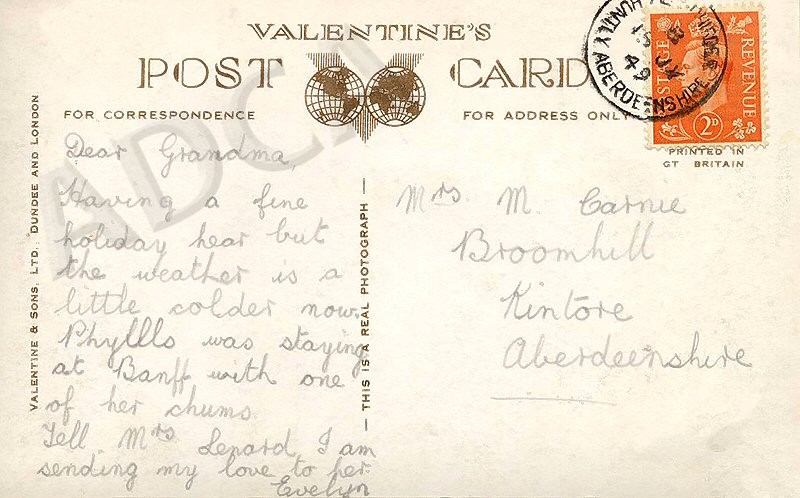 VALENTINE'S
POST CARD
FOR CORRESPONDENCE
FOR ADDRESS ONLY
PRINTED IN
GT BRITAIN
REVENUE
2D
HUNTLY ABERDEENSHIRE
49
VALENTINE & SONS, LTD., DUNDEE AND LONDON
Dear Grandma,
Having a fine
holiday hear but
the weather is a
little colder now.
Phyllls was staying
at Banff with one
of her chums.
Tell Mrs Lenard I am
sending my love to her.
Evelyn
— THIS IS A REAL PHOTOGRAPH —
Mrs. M. Carnie
Broomhill
Kintore
Aberdeenshire